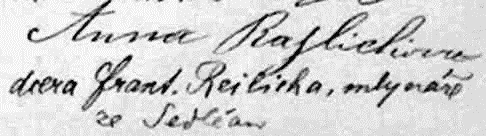 Anna Rajlichova
dcera Frant. Reilicha, mlynáře
ze Sedlčan